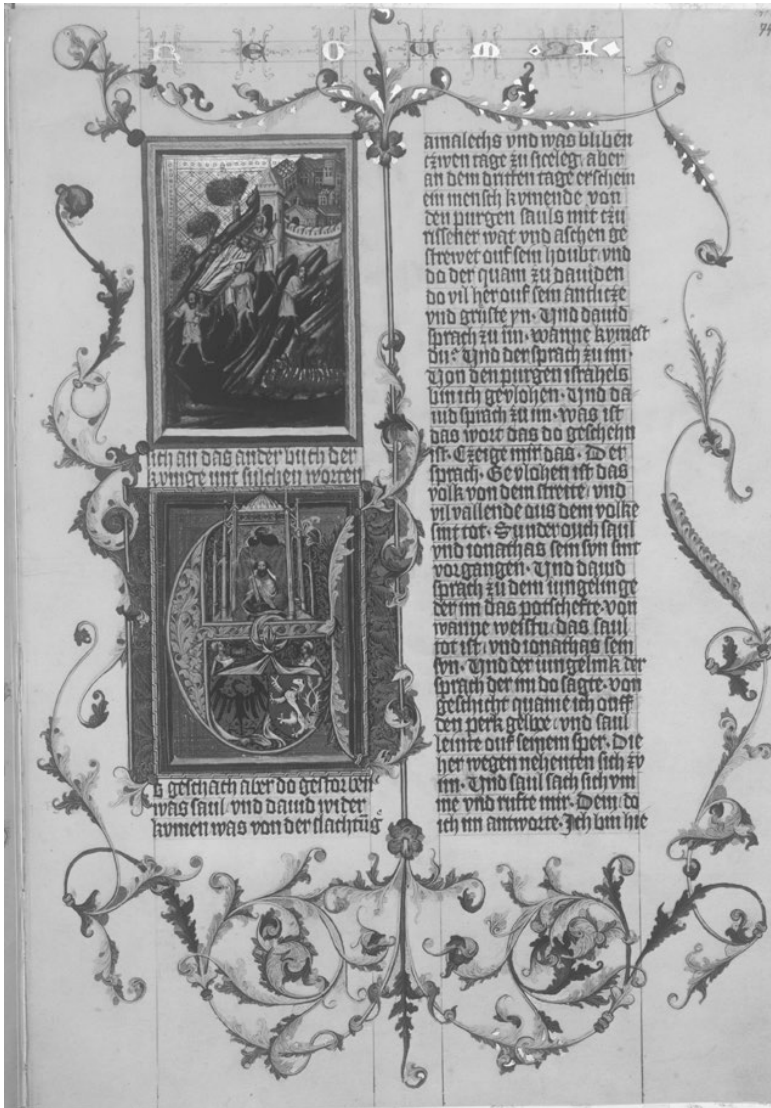 R E G U M · II ·
74
ich an das ander buch der
kunige mit sulchen worten
s geschach aber do gestorben
was saul, vnd dauid wider
kvmen was von der slachtūg
amalechs vnd was bliben
czwen tage zu siceleg, aber
an dem dritten tage erschein
ein mensch kvmende von
den purgen sauls mit czu
rissener wat vnd aschen ge
strewet ouf sein houbt, vnd
do der quam zu dauiden
do vil her ouf sein antlicze
vnd gruste yn. Vnd dauid
sprach zu im. wanne kvmest
du? Vnd der sprach zu im.
Von den purgen israhels
bin ich gevlohen. Vnd da
uid sprach zu im. was ist
das wort das do geschehn
ist. Czeige mir das. Der
sprach. Gevlohen ist das
volk von dem streite, vnd
vil vallende ous dem volke
sint tot. Sunder ouch saul
vnd ionathas sein svn sint
vorgangen. Vnd dauid
sprach zu dem iungelinge
der im das potschefte. von
wanne weistu, das saul
tot ist, vnd ionathas sein
svn. Vnd der iungelink der
sprach der im do sagte. von
geschicht quame ich ouff
den perk gelboe, vnd saul
leinte ouf seinem sper. Die
her wegen nehenten sich zv
im. Vnd saul sach sich vm
me vnd rufte mir. Dem, do
ich im antworte. Ich bin hie